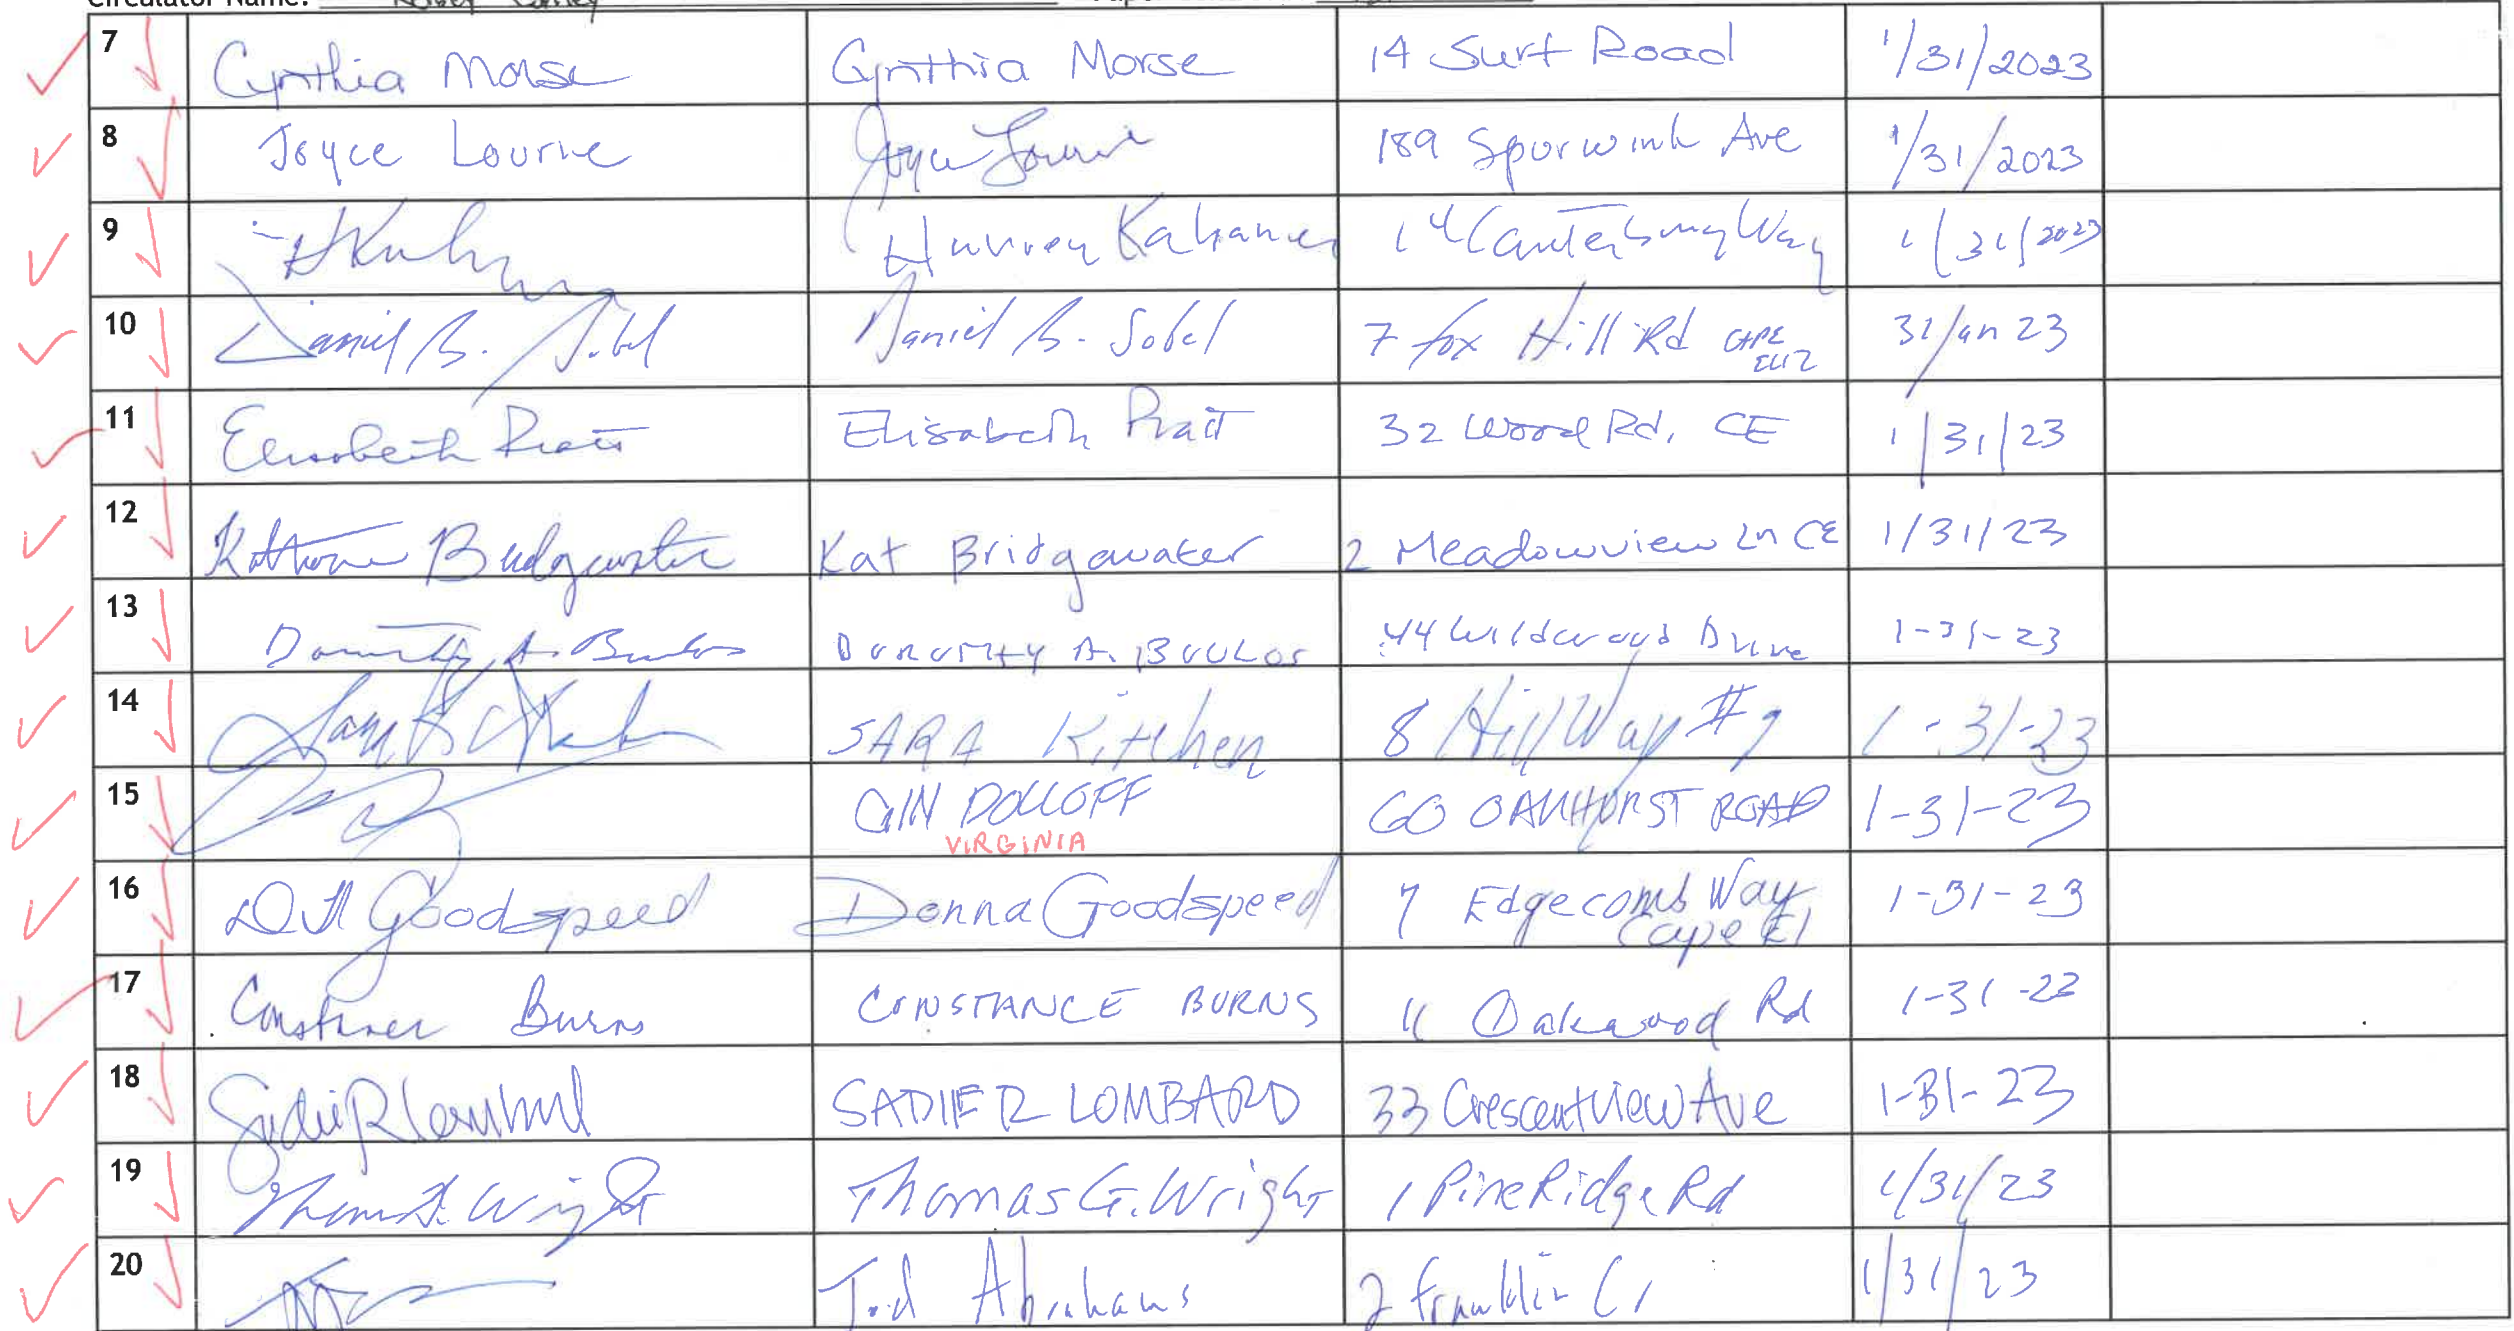 Circulator Name:
7 Cynthia Morse Cynthia Morse 14 Surf Road 1/31/2023
8 Joyce Lourie Joyce Lourie 189 Spurwink Ave 1/31/2023
9 Kahaner 14 Canterbury Way 1/31/2023
10 Daniel B. Sobel Daniel B. Sobel 7 Fox Hill Rd CAPE
ELIZ 31 Jan 23
11 Elisabeth Pratt Elisabeth Pratt 32 Wood Rd, CE 1/31/23
12 Bridgewater Kat Bridgewater 2 Meadowview Ln CE 1/31/23
13 Dorothy A. Boulos DOROTHY A. BOULOS 44 Wildwood Drive 1-31-23
14 SARA Kitchen 8 Hill Way # 1-31-23
15 GIN DOLLOFF 60 OAKHURST ROAD 1-31-23
VIRGINIA
16 Goodspeed Donna Goodspeed 7 Edgecomb Way
Cape El 1-31-23
17 Constance Burns CONSTANCE BURNS 11 Oakwood Rd 1-31-23
18 Sadie R Lombard SADIE R LOMBARD 33 Crescent View Ave 1-31-23
19 Thomas G. Wright Thomas G. Wright 1 Pine Ridge Rd 1/31/23
20 Tod Abrahams 2 Franklin Cr 1/31/23